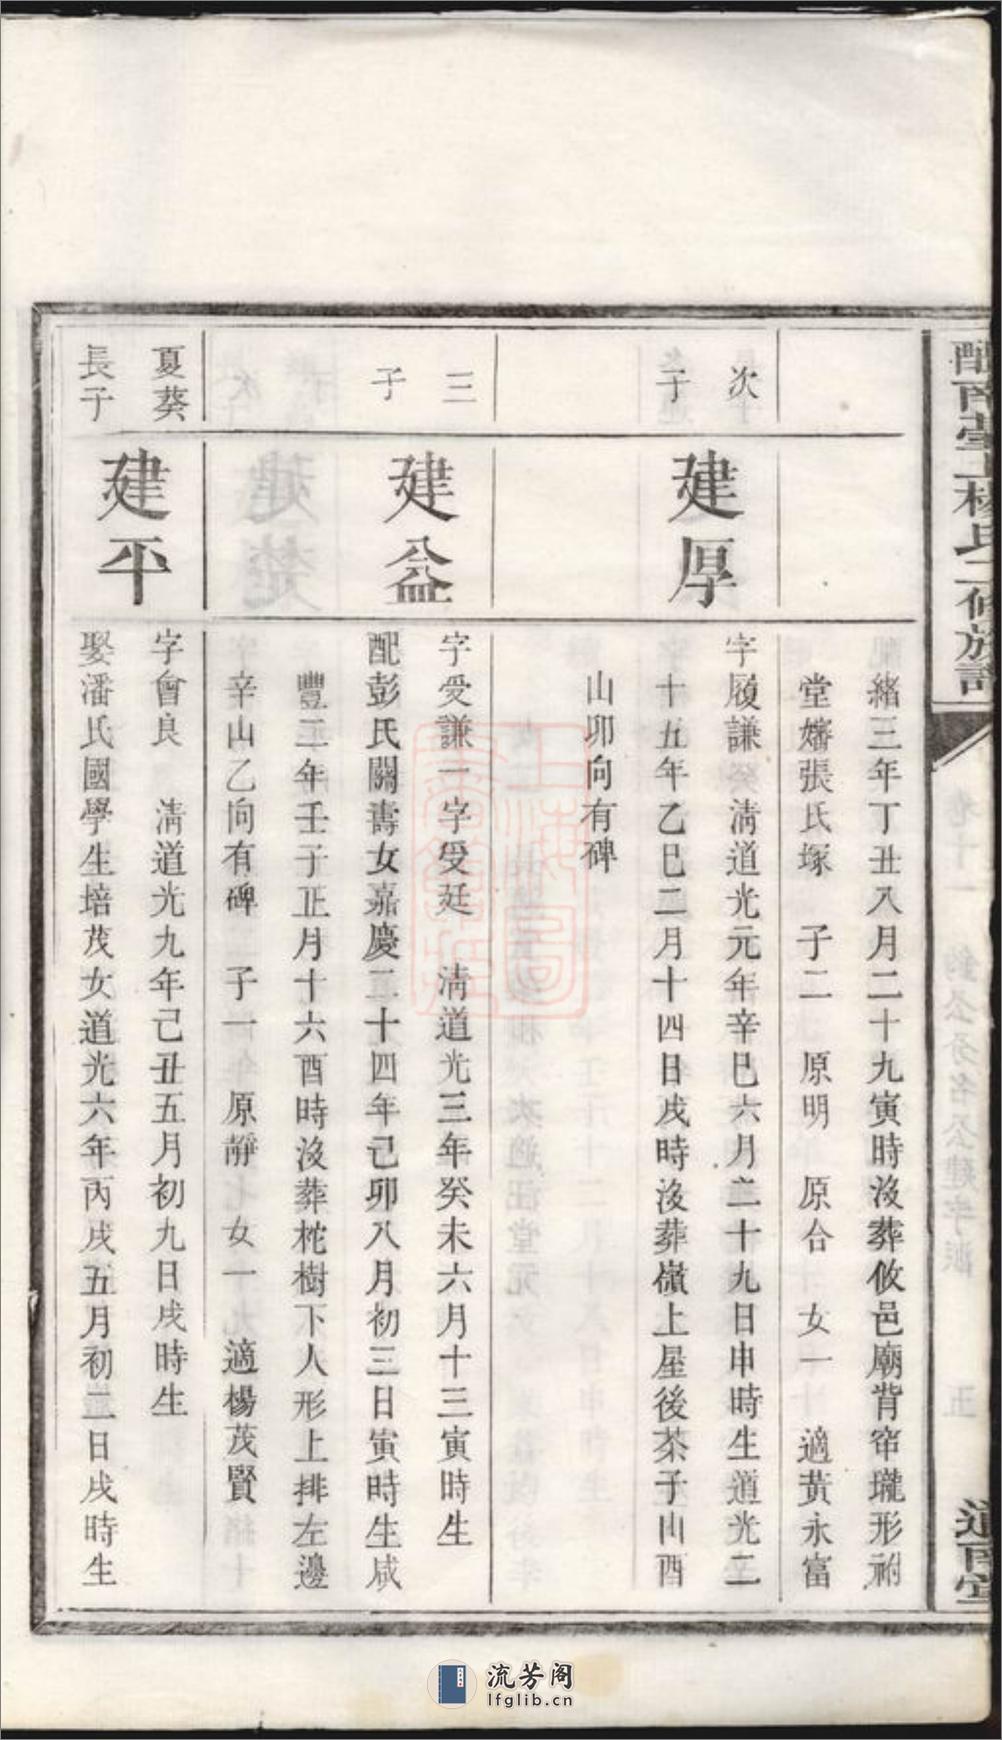 醴南堂上楊氏二修族譜
道南堂
緒三年丁丑八月二十九寅時沒葬攸邑廟背帘瓏形祔
堂嬸張氏塚　子二　原明　原合　女一　適黃永富
次子
建厚
字履謙　清道光元年辛巳六月二十九日申時生道光二
十五年乙巳二月十四日戌時沒葬嶺上屋後茶子山酉
山卯向有碑
三子
建益
字受謙一字受廷　清道光三年癸未六月十三寅時生
配彭氏關壽女嘉慶二十四年己卯八月初三日寅時生咸
豐二年壬子正月十六酉時沒葬枕樹下人形上排左邊
辛山乙向有碑　子一　原靜　女一　適楊茂賢
夏葵長子
建平
字會良　清道光九年己丑五月初九日戌時生
娶潘氏國學生培茂女道光六年丙戌五月初二日戌時生
流芳阁
lfglib.cn